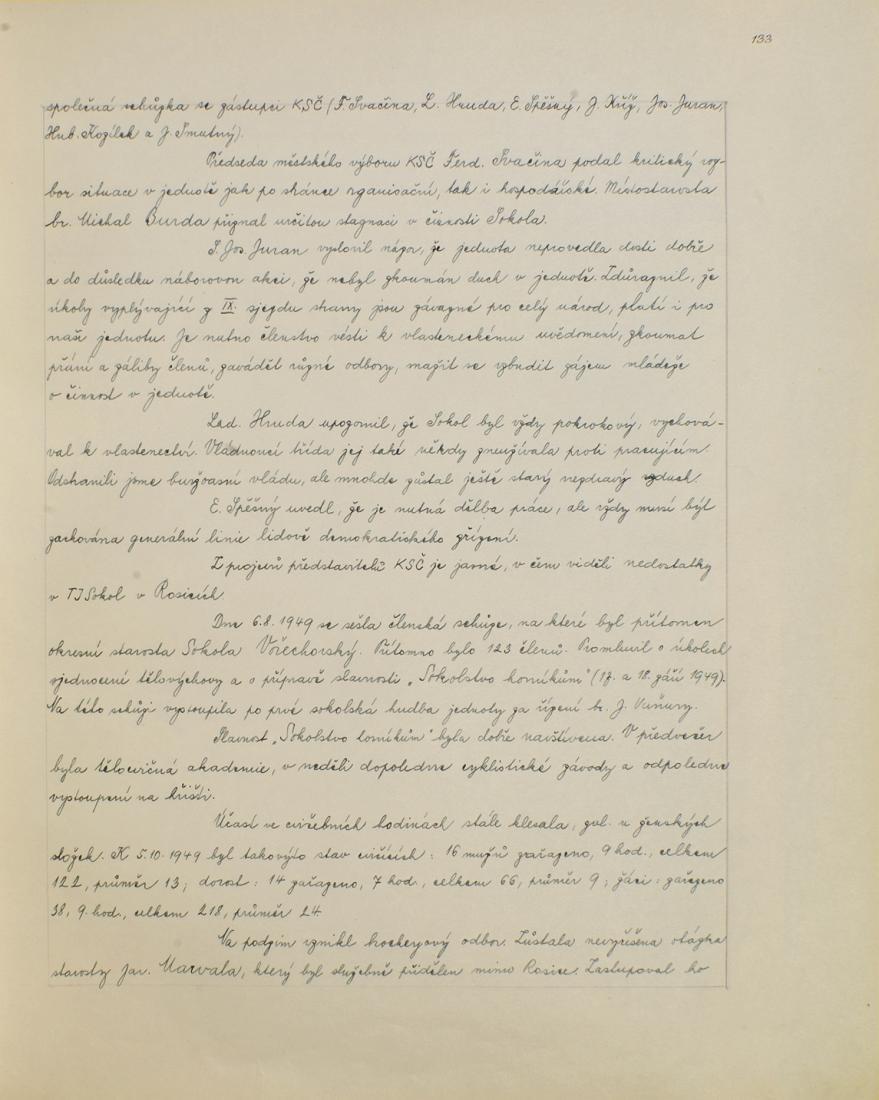 133
společná schůzka se zástupci KSČ (F. Svačina, L. Hruda, E. Spěšný, J. Kříž, Jos. Juran,
Hub. Kozílek a J. Smutný).
Předseda městského výboru KSČ Ferd. Svačina podal kritický roz-
bor situace v jednotě jak po stránce organisační, tak i hospodářské. Místostarosta
br. Michal Burda přiznal určitou stagnaci v činnosti Sokola.
S. Jos. Juran vyslovil názor, že jednota neprovedla dosti dobře
a do důsledku náborovou akci, že nebyl zkoumán duch v jednotě. Zdůraznil, že
úkoly vyplývající z IX. sjezdu strany jsou závazné pro celý národ, platí i pro
naši jednotu. Je nutno členstvo vésti k vlasteneckému uvědomení, zkoumat
přání a záliby členů, zavádět různé odbory, snažit se vzbudit zájem mládeže
o činnost v jednotě.
Lad. Hruda upozornil, že Sokol byl vždy pokrokový, vychová-
val k vlastenectví. Vládnoucí třída jej také někdy zneužívala proti pracujícím.
Odstranili jsme buržoasní vládu, ale mnohde zůstal ještě starý nezdravý vzduch.
E. Spěšný uvedl, že je nutná dělba práce, ale vždy musí být
zachována generální linie lidově demokratického zřízení.
Z projevů představitelů KSČ je jasné, v čem viděli nedostatky
v TJ Sokol v Rosicích
Dne 6.8.1949 se sešla členská schůze, na které byl přítomen
okresní starosta Sokola Vořechovský. Přítomno bylo 123 členů. Promluvil o úkolech
sjednocené tělovýchovy a o přípravě slavnosti „Sokolstvo horníkům" (17. a 18. září 1949).
Na této schůzi vystoupila po prvé sokolská hudba jednoty za řízení br. J. Vaňury.
Slavnost „Sokolstvo horníkům" byla dobře navštívena. V předvečer
byla tělocvičná akademie, v neděli dopoledne cyklistické závody a odpoledne
vystoupení na hřišti.
Účast ve cvičebních hodinách stále klesala, zvl. u ženských
složek. K 5.10.1949 byl takovýto stav cvičících: 16 mužů zařazeno, 9 hod., celkem
122, průměr 13; dorost: 14 zařazeno, 7 hod., celkem 66, průměr 9; žáci: zařazeno
38, 9. hod., celkem 218, průměr 24
Na podzim vznikl hockeyový odbor. Zůstala nevyřešena otázka
starosty Jar. Marvala, který byl služebně přidělen mimo Rosice. Zastupoval ho